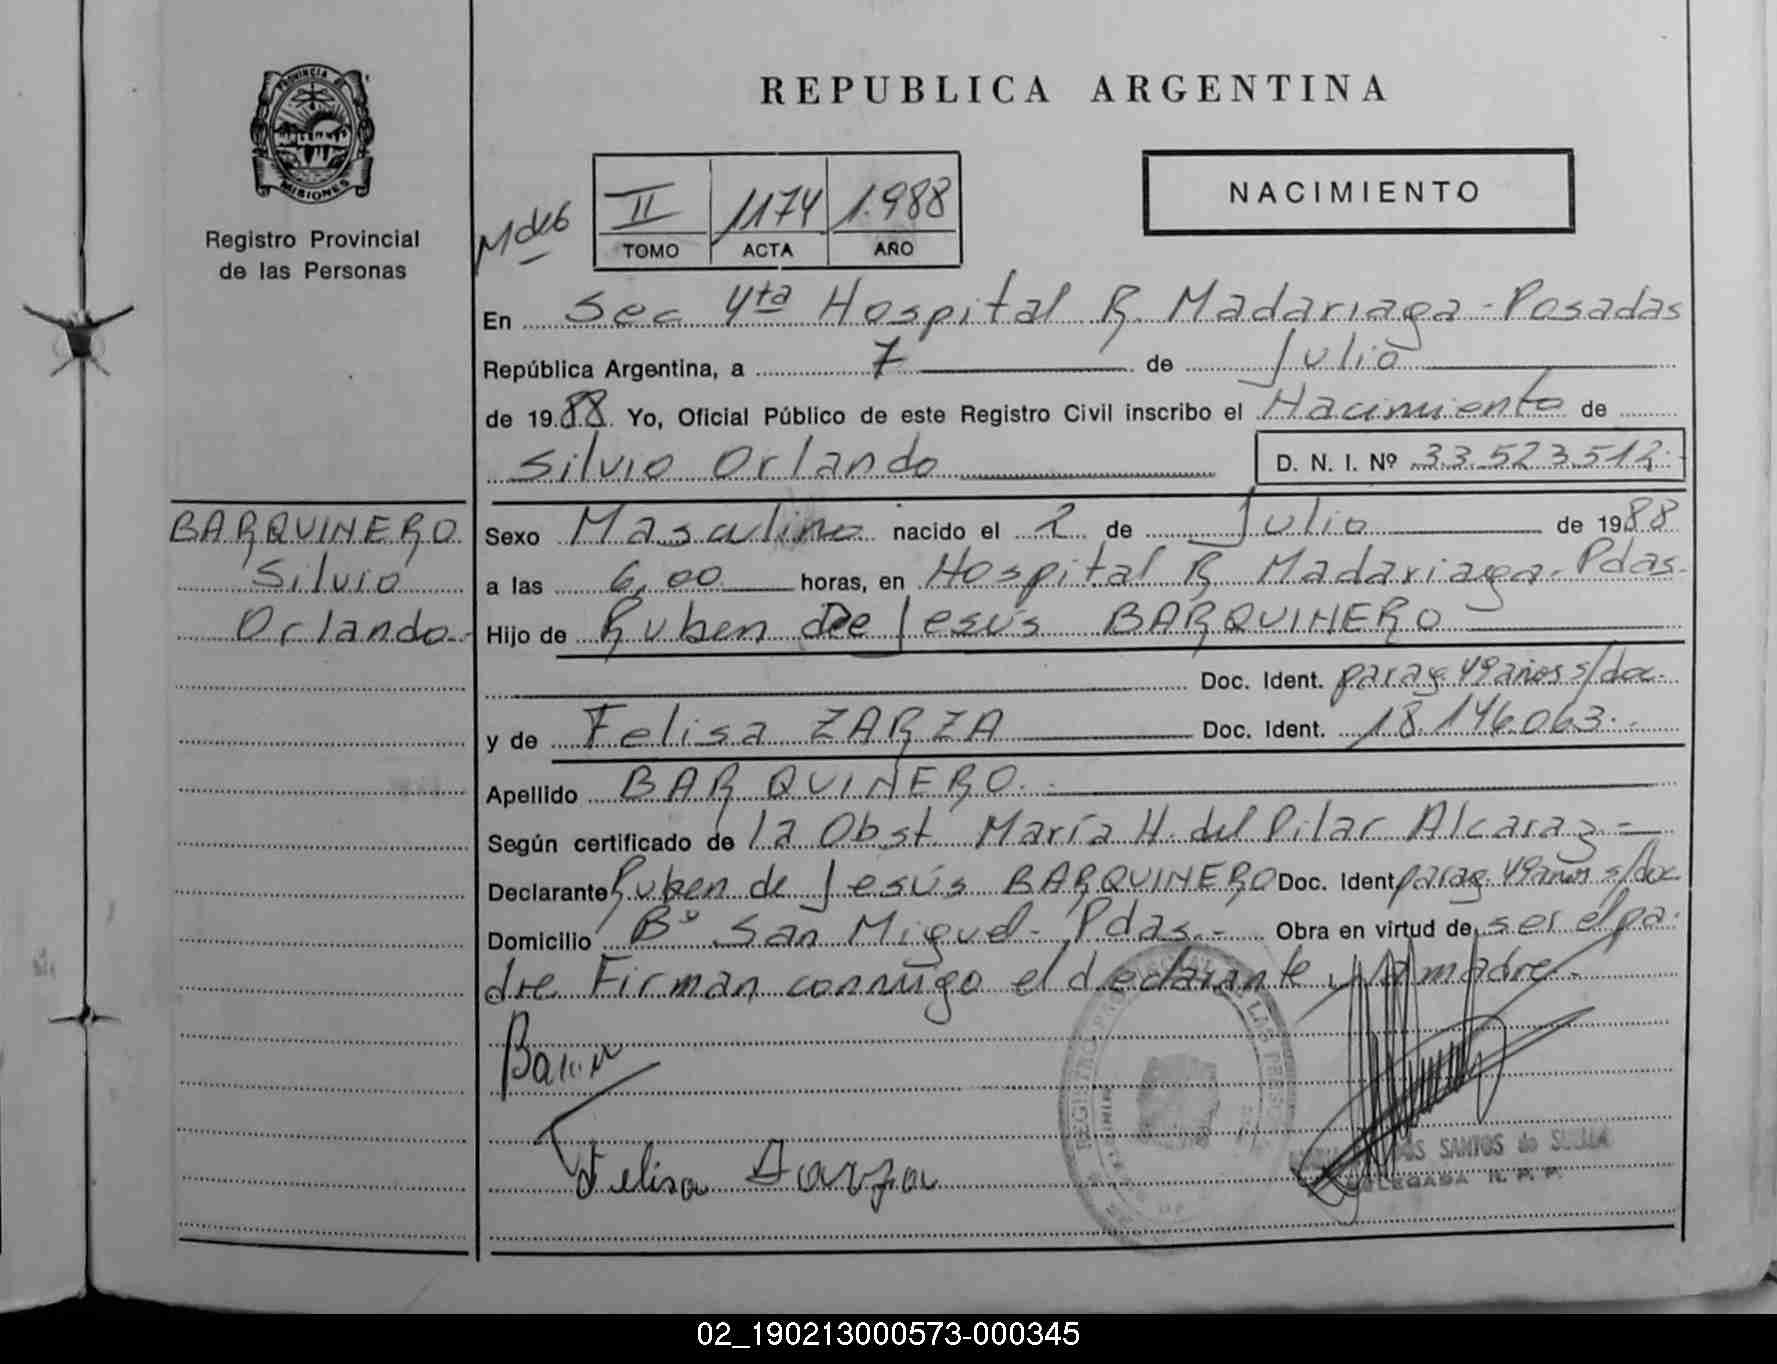 PROVINCIA DE
MISIONES
Registro Provincial
de las Personas
REPUBLICA ARGENTINA
NACIMIENTO
II 1174 1.988
TOMO ACTA AÑO
En Sec 4ta Hospital R. Madariaga - Posadas
República Argentina, a 7 de Julio
de 1988 Yo, Oficial Público de este Registro Civil inscribo el Nacimiento de
Silvio Orlando D. N. I. Nº 33.523.512.-
BARQUINERO
Silvio
Orlando.-
Sexo Masculino nacido el 2 de Julio de 1988
a las 6,00 horas, en Hospital R Madariaga - Pdas.
Hijo de Ruben de Jesús BARQUINERO
Doc. Ident. parag. 49 años s/doc.
y de Felisa ZARZA Doc. Ident. 18.146.063.-
Apellido BARQUINERO.-
Según certificado de la Obst. María H. del Pilar Alcaraz.-
Declarante Ruben de Jesús BARQUINERO Doc. Ident. parag. 49 años s/doc
Domicilio Bº San Miguel - Pdas.- Obra en virtud de ser el pa-
dre Firman conmigo el declarante y la madre.-
Felisa Zarza
SANTOS de
DELEGADA R. P. P.
02_190213000573-000345